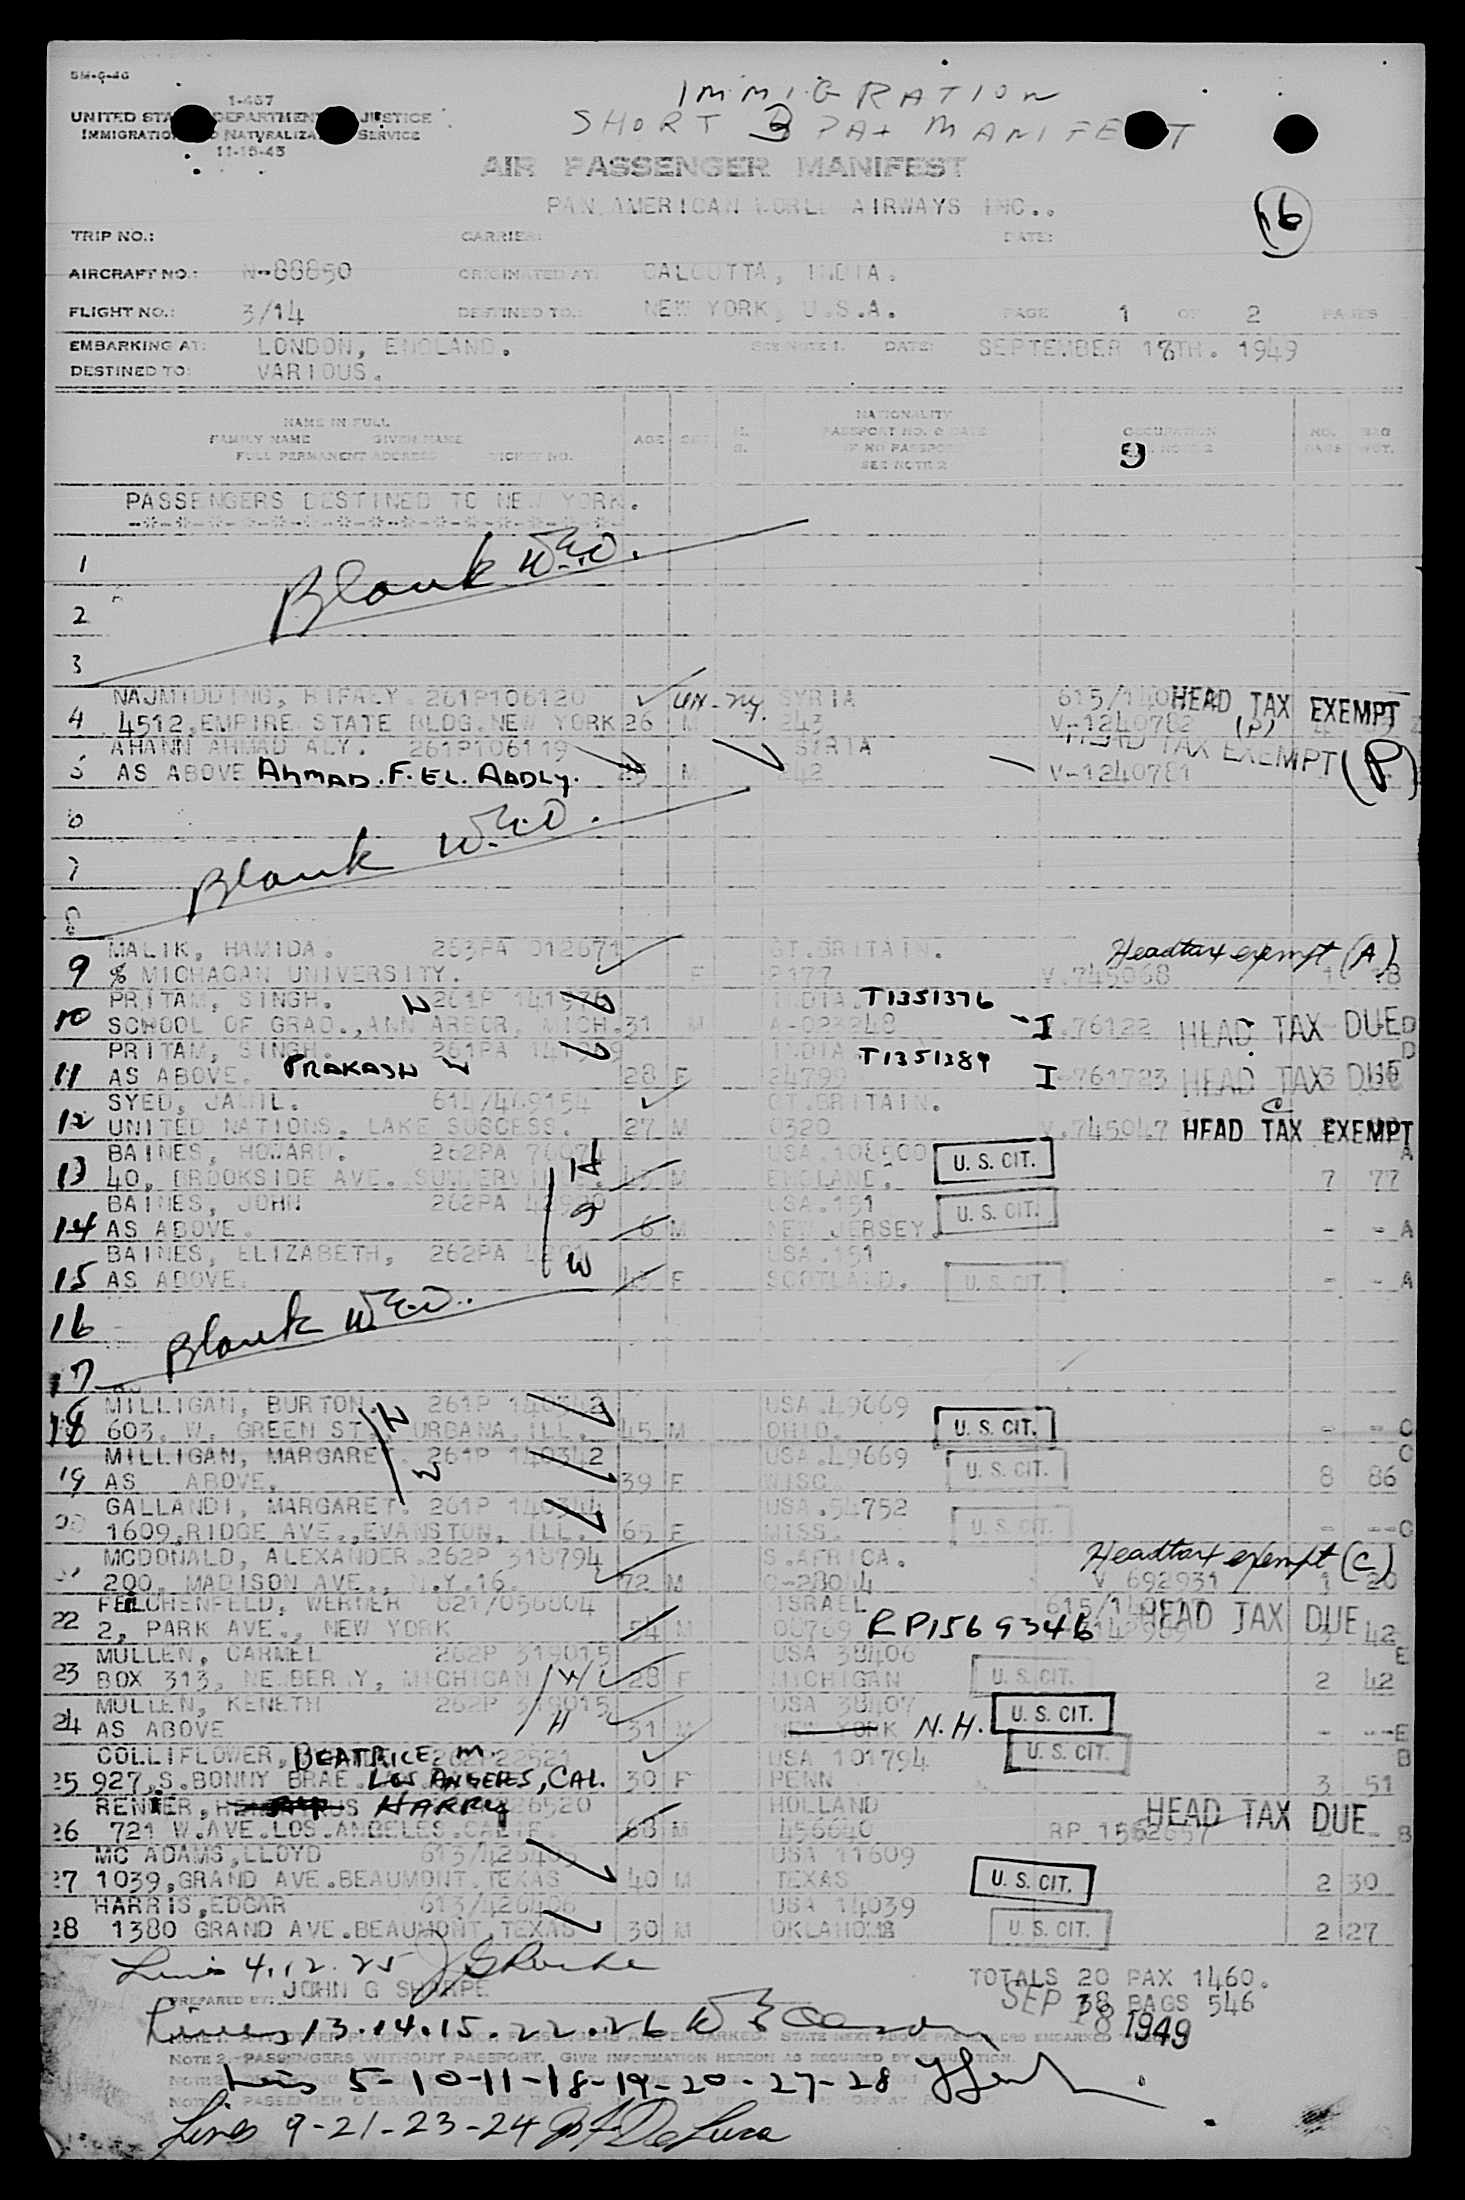 IMMIGRATION
SHORT B PAX MANIFEST
1-457
UNITED STA DEPARTMEN JUSTICE
IMMIGRATIO NATURALIZA SERVICE
11-15-45
AIR PASSENGER MANIFEST
PAN AMERICAN WORLD AIRWAYS INC..
16
TRIP NO.: CARRIER: DATE:
AIRCRAFT NO.: N-88850 ORIGINATED AT: CALCUTTA, INDIA.
FLIGHT NO.: 3/14 DESTINED TO: NEW YORK, U.S.A. PAGE 1 OF 2 PAGES
EMBARKING AT: LONDON, ENGLAND. SEE NOTE 1. DATE: SEPTEMBER 18TH. 1949
DESTINED TO: VARIOUS.
NAME IN FULL NATIONALITY
FAMILY NAME GIVEN NAME AGE SEX PASSPORT NO. & DATE OCCUPATION NO. BAG
FULL PERMANENT ADDRESS TICKET NO. IF NO PASSPORT NOTE 2 BAGS WGT.
SEE NOTE 2
9
PASSENGERS DESTINED TO NEW YORK.
1
Blank W.E.O.
2
3
NAJMIDDING, RIFAEY 261P106120 UN-NY. SYRIA 615/140 HEAD TAX EXEMPT
4 4512, EMPIRE STATE BLDG. NEW YORK 26 M 243 V-1240782 (P)
AHANN AHMAD ALY. 261P106119 SYRIA HEAD TAX EXEMPT (P)
5 AS ABOVE AHMAD. F. EL. AADLY. M 242 V-1240781
6
7 Blank W.E.O.
8
MALIK, HAMIDA. 263PA 012671 GT.BRITAIN. Headtax exempt (A)
9 % MICHAGAN UNIVERSITY. F P177 V.745068
PRITAM, SINGH. W 261P INDIA. T1351376
10 SCHOOL OF GRAD., ANN ARBOR, MICH. 31 M I.76122 HEAD TAX DUE D
PRITAM, SINGH. 261PA INDIA T1351389 D
11 AS ABOVE. PRAKASH W 28 F 24799 I-761723 HEAD TAX DUE
SYED, JAMIL. 614/469154 GT.BRITAIN.
12 UNITED NATIONS, LAKE SUCCESS. 27 M 0320 V.745047 HEAD TAX EXEMPT
BAINES, HOWARD. 262PA H USA U. S. CIT. A
13 40, BROOKSIDE AVE. M ENGLAND. 7 77
BAINES, JOHN 262PA S USA.151 U. S. CIT.
14 AS ABOVE. 6 M NEW JERSEY. - - A
BAINES, ELIZABETH, 262PA W USA.151
15 AS ABOVE. F SCOTLAND. U. S. CIT. - - A
16
Blank W.E.O.
17
MILLIGAN, BURTON. 261P 140342 H USA.49669
18 603, W. GREEN ST., URBANA, ILL. 45 M OHIO. U. S. CIT. - -- C
MILLIGAN, MARGARET. 261P 140342 W USA.49669 C
19 AS ABOVE. 39 F WISC U. S. CIT. 8 86
GALLANDI, MARGARET. 261P 140344 USA.54752
20 1609, RIDGE AVE., EVANSTON, ILL. 65 F MISS. U. S. CIT. - -- C
MCDONALD, ALEXANDER. 262P 318794 S.AFRICA. Headtax exempt (C)
200, MADISON AVE., N.Y.16. 72 M C-28044 V 692931 1 20
FEILCHENFELD, WERNER 021/056804 ISRAEL HEAD TAX DUE
22 2, PARK AVE., NEW YORK 54 M 06769 RP1569346 42
MULLEN, CARMEL 262P 319015 USA 38406 E
23 BOX 313, NEWBERRY, MICHIGAN W 28 F MICHIGAN U. S. CIT. 2 42
MULLEN, KENETH 262P 319015 USA 38407
24 AS ABOVE H 31 M NEW YORK N.H. U. S. CIT. - --E
COLLIFLOWER, BEATRICE M. USA 101794 U. S. CIT. B
25 927, S. BONNY BRAE. LOS ANGELES, CAL. 30 F PENN 3 51
RENIER, HARRY HOLLAND HEAD TAX DUE
26 721 W.AVE.LOS.ANGELES.CALIF. 68 M 456640 RP - B
MC ADAMS, LLOYD USA 11609
27 1039, GRAND AVE.BEAUMONT.TEXAS 40 M TEXAS U. S. CIT. 2 30
HARRIS, EDGAR 613/426406 USA 14039
28 1380 GRAND AVE.BEAUMONT, TEXAS 30 M OKLAHOMA U. S. CIT. 2 27
Lines 4.12.25
PREPARED BY: JOHN G SHARPE TOTALS 20 PAX 1460.
38 BAGS 546
SEP 18 1949
Lines 13.14.15.22.26
NOTE 2.-PASSENGERS WITHOUT PASSPORT. GIVE INFORMATION HEREON AS REQUIRED BY REGULATION.
Lines 5-10-11-18-19-20-27-28
Lines 9-21-23-24 DeLuca